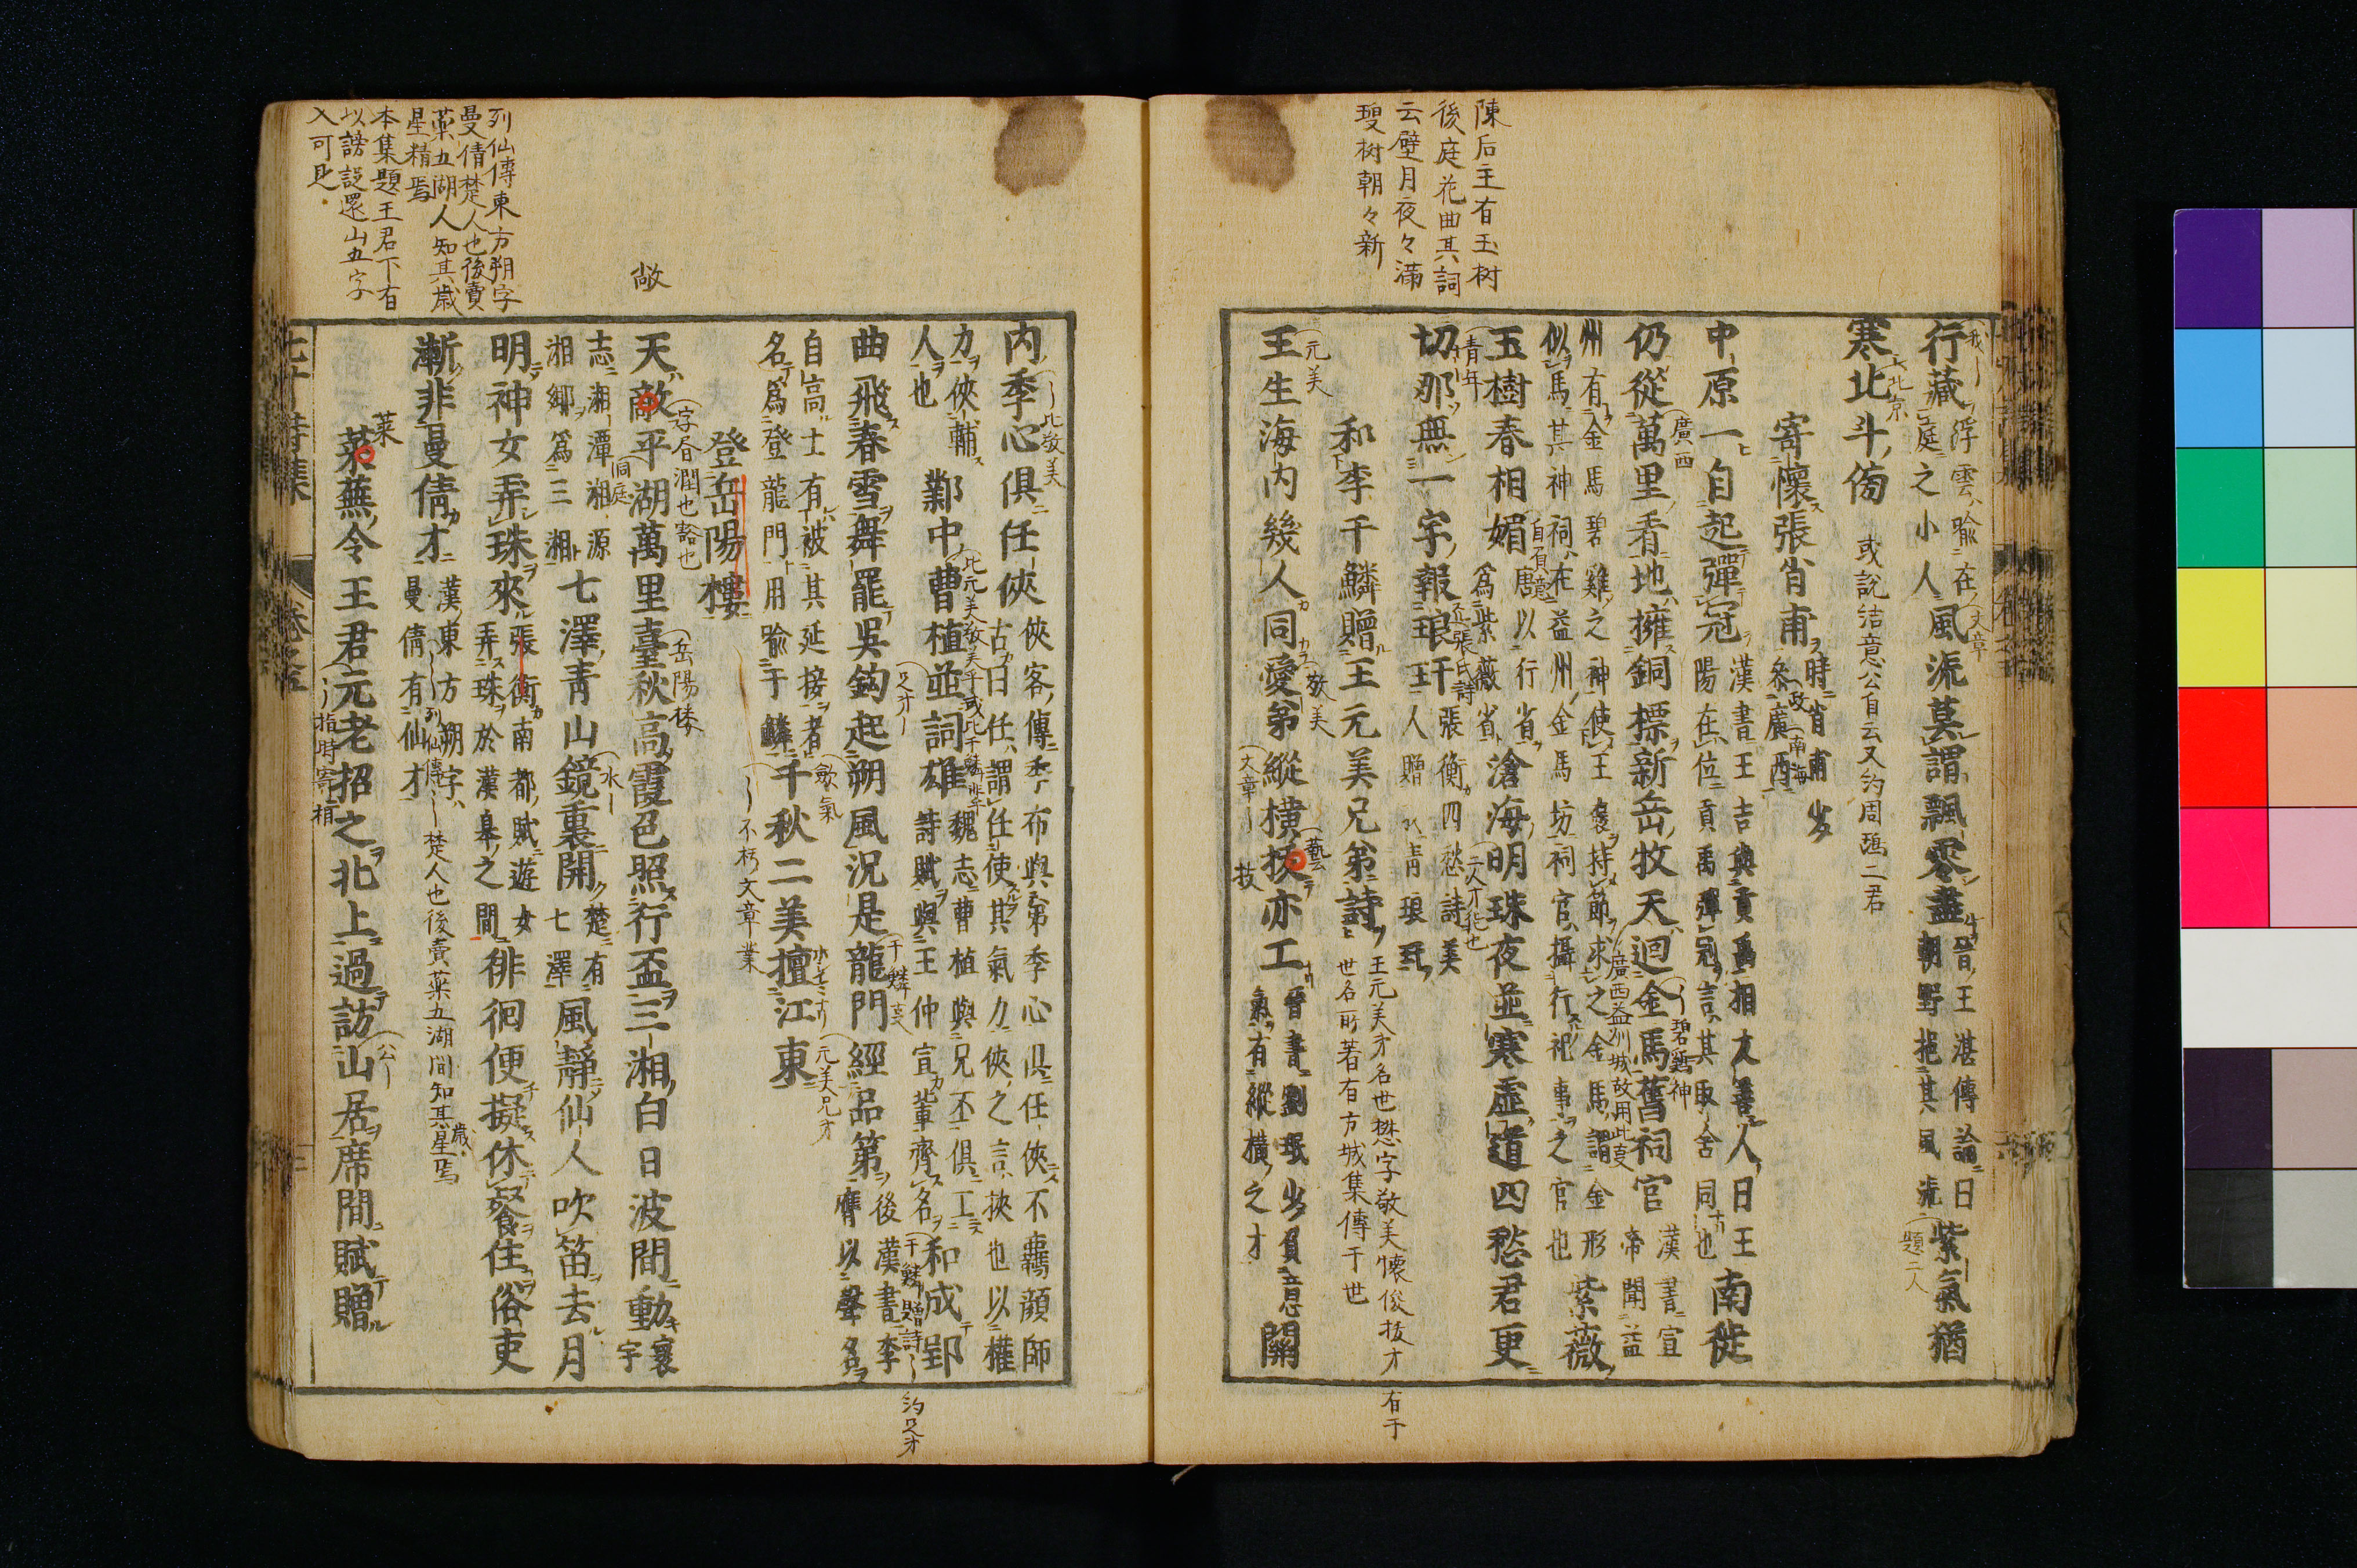 陳后主有玉树
後庭花曲其詞
云壁月夜々滿
瓊树朝々新
行藏
浮雲喩在
庭之小人
風流莫謂飄零盡
晉王湛傳論曰
朝野挹其風流
紫氣猶
寒北斗傍
或説結意公自云又約周題二君
寄懷張肖甫
時肖甫
參政廣西
中原一自起彈冠
漢書王吉與貢禹相友善人曰王
陽在位貢禹彈冠言其取舍同也
南徙
仍從萬里看地擁銅標新岳牧天迴金馬舊祠官
漢書宣
帝聞益
州有金馬碧雞之神使王褒持節求之金馬謂金形
似馬其神祠在益州金馬坊祠官攝行祀事之官也
紫薇
玉樹春相媚
唐以行省
爲紫薇省
滄海明珠夜並寒虛道四愁君更
切那無一字報琅玕
張衡四愁詩美
人贈以青琅玕
和李于鱗贈王元美兄弟詩
王元美才名世懋字敬美懷俊拔才有于
世名所著有方城集傳于世
王生海内幾人同愛弟縱橫技亦工
晉書劉珉少負意
氣有縱橫之才
關
内季心俱任俠
俠客傳季布與弟季心俱任俠不羈顔師
古曰任謂任使其氣力俠之言挾也以權
力俠輔
人也
鄴中曹植並詞雄
魏志曹植與兄丕俱工
詩賦與王仲宣輩齊名
和成郢
曲飛春雪舞罷吳鈎起朔風況是龍門經品第
後漢書李
膺以聲名
自高士有被其延接者
名爲登龍門用喩于鱗
千秋二美擅江東
不朽文章業
登岳陽樓
敞
天敵平湖萬里臺秋高霞色照行盃三湘白日波間動
寰宇
志湘潭湘源
湘鄉爲三湘
七澤青山鏡裏開
楚有
七澤
風靜仙人吹笛去月
明神女弄珠來
張衡南都賦遊女
弄珠於漢皐之間
徘徊便擬休餐住俗吏
漸非曼倩才
漢東方朔字
曼倩有仙才
列仙傳楚人也後賣藥五湖間知其歳星焉
萊蕪令王君元老招之北上過訪山居席間賦贈
列仙傳東方朔字
曼倩楚人也後賣
藥五湖人知其歳
星精焉
本集題王君下有
以謗議還山五字
入可見